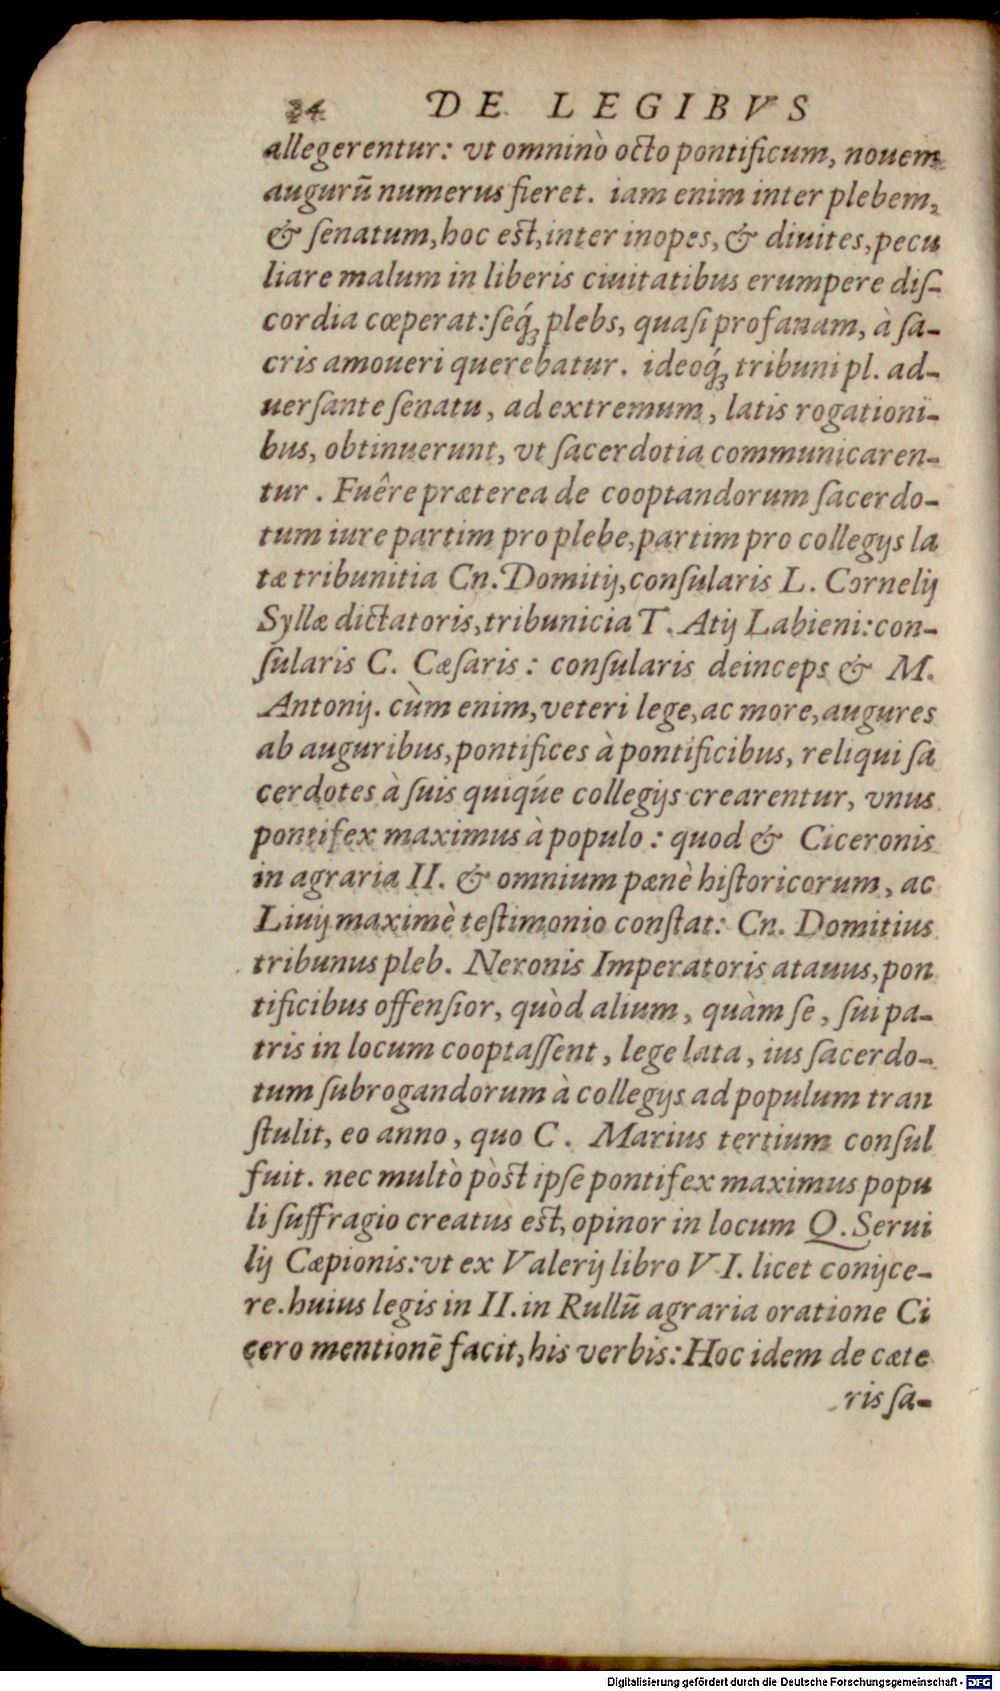 24 DE LEGIBVS
allegerentur: vt omninò octo pontificum, nouem
augurũ numerus fieret. iam enim inter plebem,
& ſenatum, hoc est, inter inopes, & diuites, pecu
liare malum in liberis ciuitatibus erumpere diſ-
cordia cœperat: ſeq́ꝫ plebs, quaſi profanam, à ſa-
cris amoueri querebatur. ideoq́ꝫ tribuni pl. ad-
uerſante ſenatu, ad extremum, latis rogationi-
bus, obtinuerunt, vt ſacerdotia communicaren-
tur. Fuêre præterea de cooptandorum ſacerdo-
tum iure partim pro plebe, partim pro collegijs la
tæ tribunitia Cn. Domitij, conſularis L. Cornelij
Syllæ dictatoris, tribunicia T. Atij Labieni: con-
ſularis C. Cæſaris: conſularis deinceps & M.
Antonij. cùm enim, veteri lege, ac more, augures
ab auguribus, pontifices à pontificibus, reliqui ſa
cerdotes à ſuis quiqúe collegijs crearentur, vnus
pontifex maximus à populo: quod & Ciceronis
in agraria II. & omnium pænè historicorum, ac
Liuij maximè testimonio constat: Cn. Domitius
tribunus pleb. Neronis Imperatoris atauus, pon
tificibus offenſior, quòd alium, quàm ſe, ſui pa-
tris in locum cooptaſſent, lege lata, ius ſacerdo-
tum ſubrogandorum à collegijs ad populum tran
stulit, eo anno, quo C. Marius tertium conſul
fuit. nec multò pòst ipſe pontifex maximus popu
li ſuffragio creatus est, opinor in locum Q. Serui
lij Cæpionis: vt ex Valerij libro VI. licet conijce-
re. huius legis in II. in Rullũ agraria oratione Ci
cero mentionẽ facit, his verbis: Hoc idem de cæte
ris ſa-
Digitalisierung gefördert durch die Deutsche Forschungsgemeinschaft - DFG